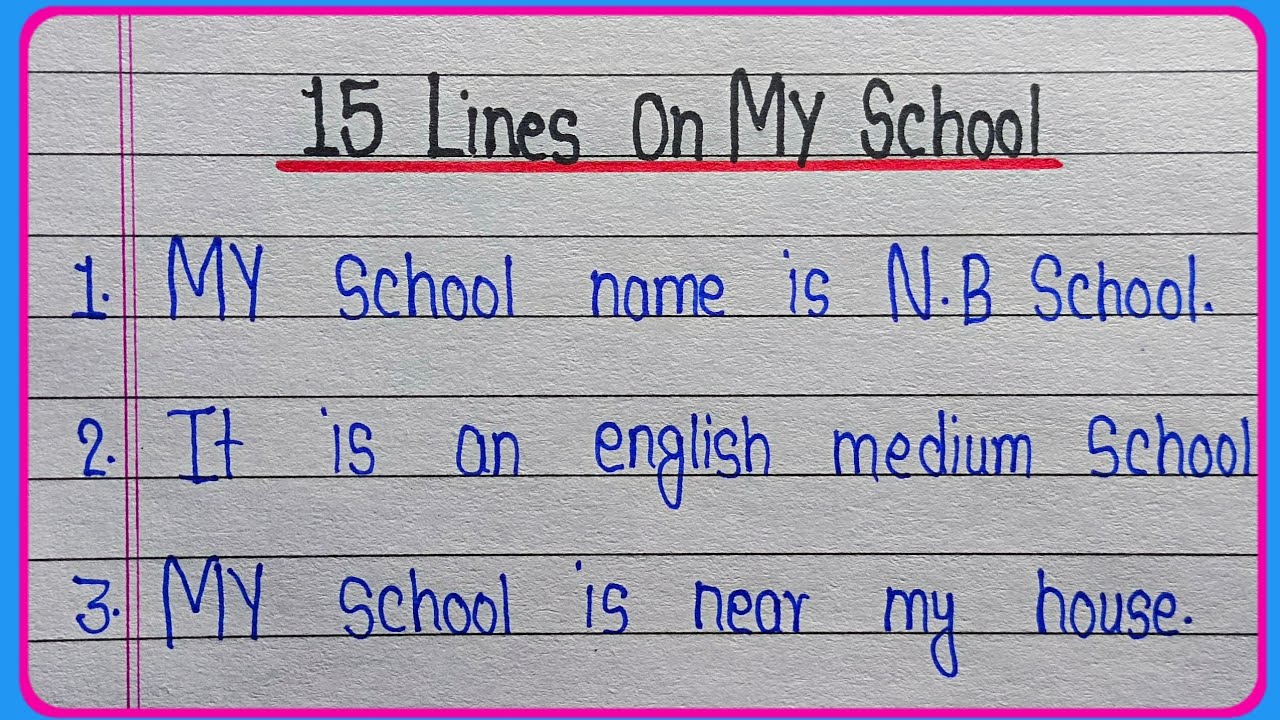 15 Lines On My School
1. My School name is N.B School.
2. It is an english medium School
3. My School is near my house.